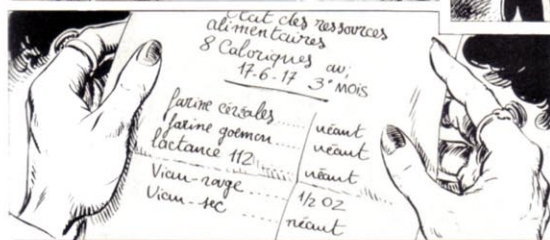 État des ressources
alimentaires
& Caloriques au,
17-6-17 3° MOIS
farine céréales..... néant
farine goémon..... néant
lactance 112..... néant
Vian-rouge..... 1/2 OZ
Vian-sec..... néant